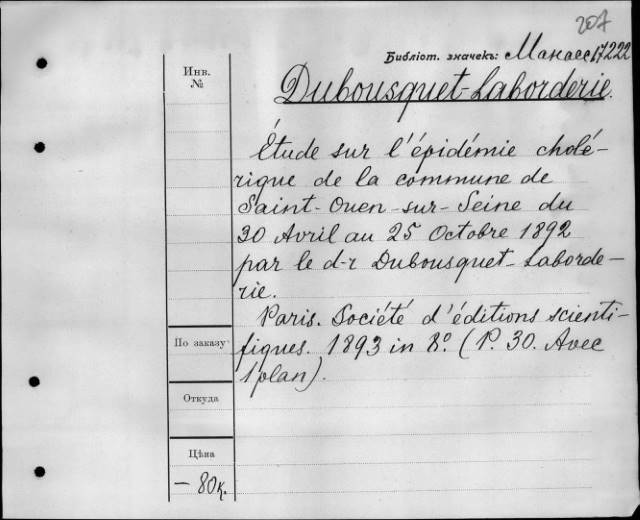 207
Библіот. значекъ: Манасс 17222
Инв.
№
Dubousquet-Laborderie.
Étude sur l'épidémie cholé-
rique de la commune de
Saint-Ouen-sur-Seine du
30 Avril au 25 Octobre 1892
par le d-r Dubousquet-Laborde-
rie.
Paris. Société d'éditions scienti-
По заказу
fiques. 1893 in 8º. (P. 30. Avec
1 plan).
Откуда
Цѣна
— 80к.